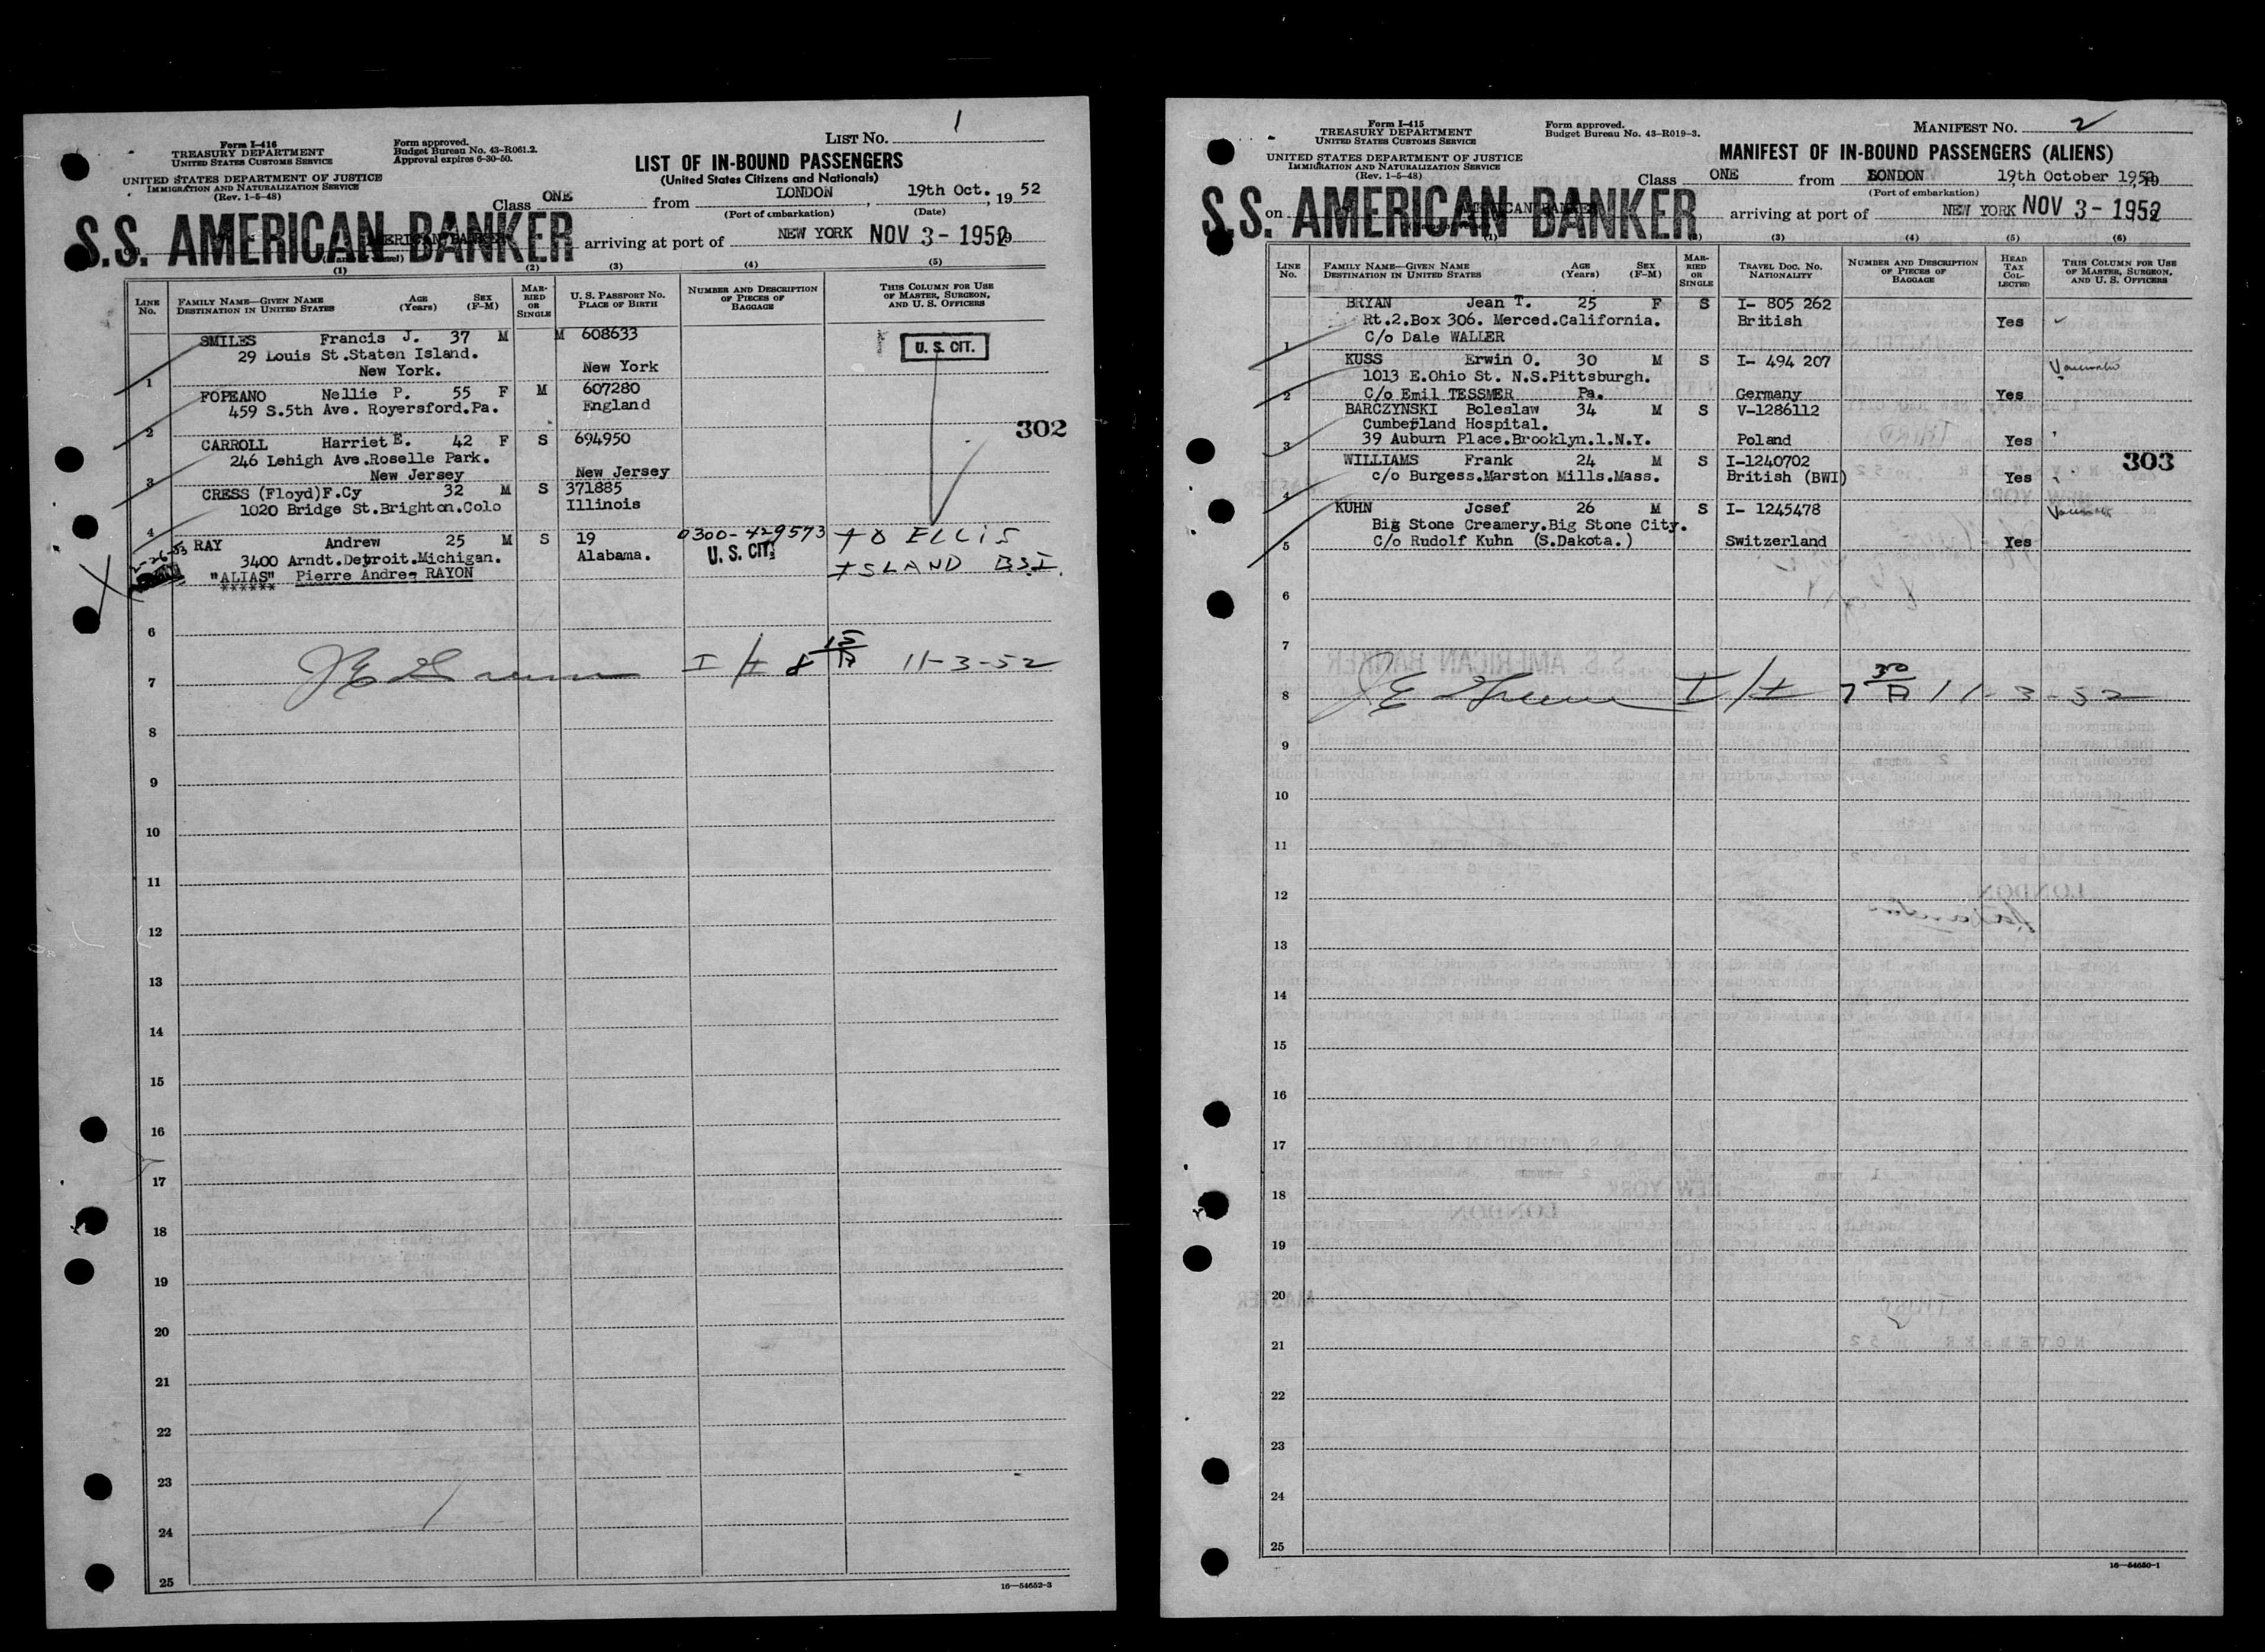 Form I-416
TREASURY DEPARTMENT
UNITED STATES CUSTOMS SERVICE
UNITED STATES DEPARTMENT OF JUSTICE
IMMIGRATION AND NATURALIZATION SERVICE
(Rev. 1-5-48)
Form approved.
Budget Bureau No. 43-R061.2.
Approval expires 6-30-50.
LIST NO. 1
LIST OF IN-BOUND PASSENGERS
(United States Citizens and Nationals)
Class ONE from LONDON, 19th Oct., 19 52
(Port of embarkation) (Date)
S.S. AMERICAN BANKER arriving at port of NEW YORK NOV 3 - 1952
(1) (2) (3) (4) (5)
LINE No. FAMILY NAME—GIVEN NAME DESTINATION IN UNITED STATES AGE (Years) SEX (F-M) MARRIED OR SINGLE U. S. PASSPORT No. PLACE OF BIRTH NUMBER AND DESCRIPTION OF PIECES OF BAGGAGE THIS COLUMN FOR USE OF MASTER, SURGEON, AND U. S. OFFICERS
SMILES Francis J. 37 M M 608633 U. S. CIT.
29 Louis St.Staten Island.
New York. New York
1
FOPEANO Nellie P. 55 F M 607280
459 S.5th Ave. Royersford.Pa. England
2 302
CARROLL Harriet E. 42 F S 694950
246 Lehigh Ave.Roselle Park.
New Jersey New Jersey
3
CRESS (Floyd)F.Cy 32 M S 371885
1020 Bridge St.Brighton.Colo Illinois
4
RAY Andrew 25 M S 19 0300-429573 TO ELLIS
2-26-53 3400 Arndt.Detroit.Michigan. Alabama. U. S. CIT. ISLAND BSI.
"ALIAS" Pierre Andre RAYON
******
6
7 I/I 8 15/A 11-3-52
8
9
10
11
12
13
14
15
16
17
18
19
20
21
22
23
24
25
16—54652-3
Form I-415
TREASURY DEPARTMENT
UNITED STATES CUSTOMS SERVICE
UNITED STATES DEPARTMENT OF JUSTICE
IMMIGRATION AND NATURALIZATION SERVICE
(Rev. 1-5-48)
Form approved.
Budget Bureau No. 43-R019-3.
MANIFEST NO. 2
MANIFEST OF IN-BOUND PASSENGERS (ALIENS)
Class ONE from LONDON 19th October 1952
(Port of embarkation)
S.S. on AMERICAN BANKER arriving at port of NEW YORK NOV 3 - 1952
(1) (3) (4) (5) (6)
LINE No. FAMILY NAME—GIVEN NAME DESTINATION IN UNITED STATES AGE (Years) SEX (F-M) MARRIED OR SINGLE TRAVEL DOC. NO. NATIONALITY NUMBER AND DESCRIPTION OF PIECES OF BAGGAGE HEAD TAX COLLECTED THIS COLUMN FOR USE OF MASTER, SURGEON, AND U. S. OFFICERS
BRYAN Jean T. 25 F S I- 805 262
Rt.2.Box 306. Merced.California. British Yes
C/o Dale WALLER
1
KUSS Erwin O. 30 M S I- 494 207
1013 E.Ohio St. N.S.Pittsburgh.
2 C/o Emil TESSMER Pa. Germany Yes
BARCZYNSKI Boleslaw 34 M S V-1286112
Cumberland Hospital.
3 39 Auburn Place.Brooklyn.1.N.Y. Poland Yes
WILLIAMS Frank 24 M S I-1240702 303
c/o Burgess.Marston Mills.Mass. British (BWI) Yes
4
KUHN Josef 26 M S I- 1245478
Big Stone Creamery.Big Stone City.
5 C/o Rudolf Kuhn (S.Dakota.) Switzerland Yes
6
7
8 I/I 7 30/A 11-3-52
9
10
11
12
13
14
15
16
17
18
19
20
21
22
23
24
25
16—54650-1